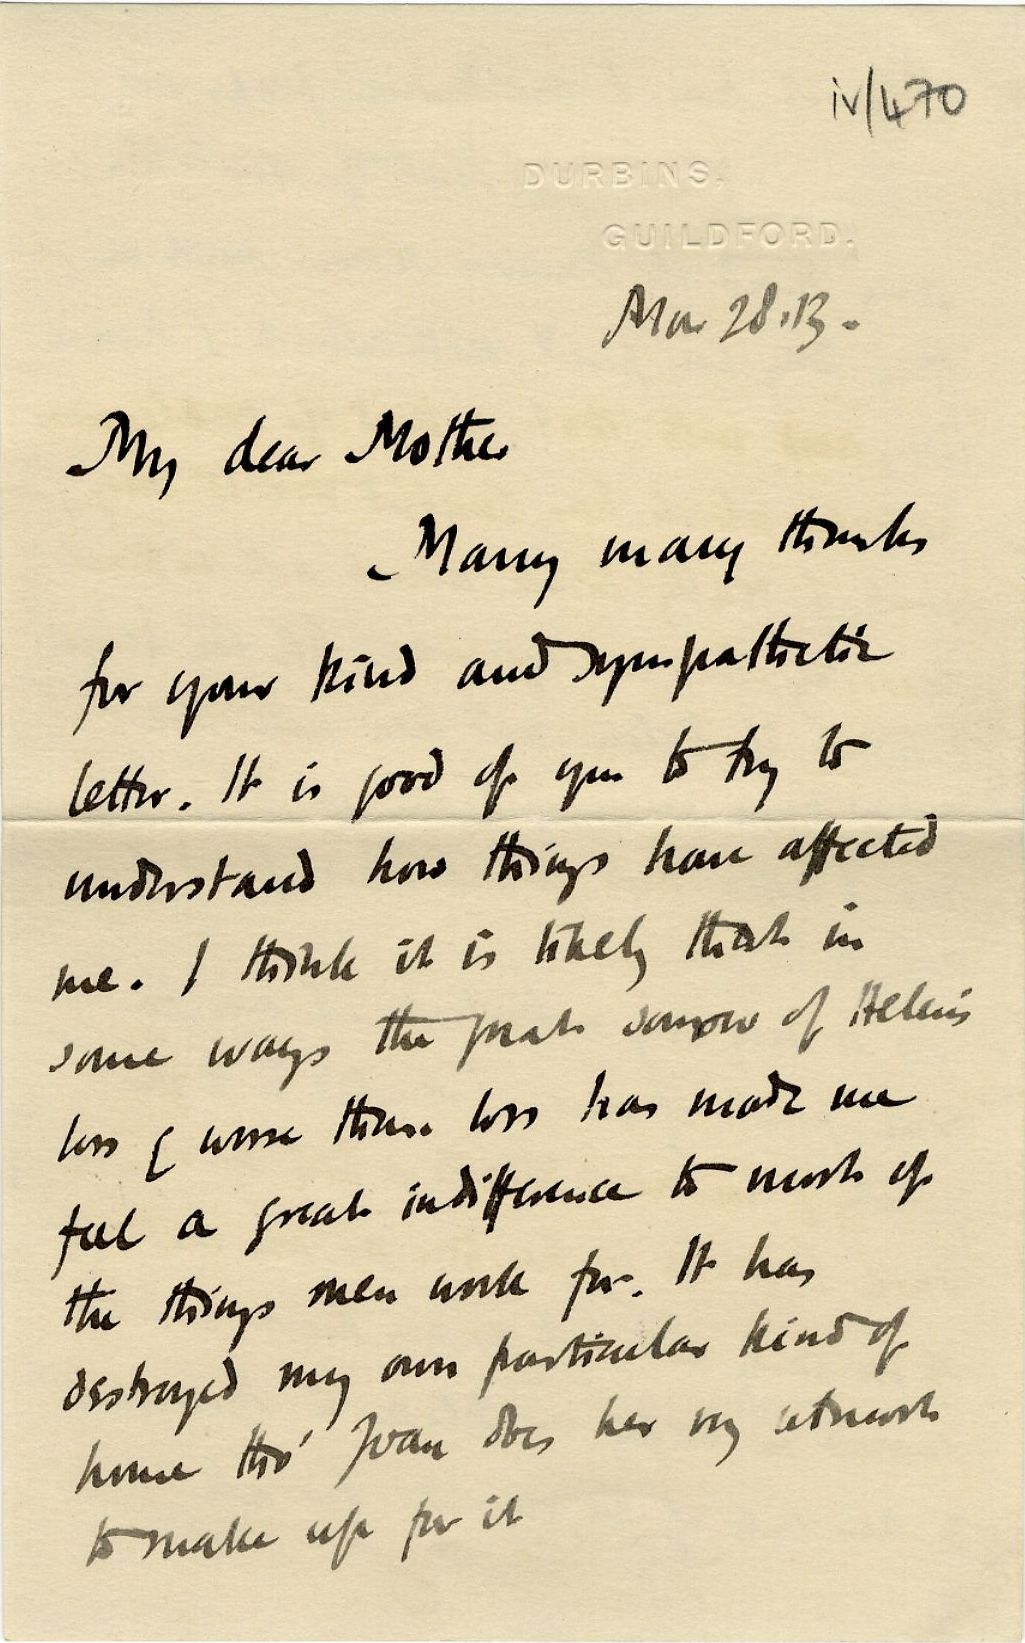 iv/470
DURBINS,
GUILDFORD.
Mar 28.13.
My dear Mother
Many many thanks
for your kind and sympathetic
letter. It is good of you to try to
understand how things have affected
me. I think it is likely that in
some ways the great sorrow of Helen's
loss & worse than loss has made me
feel a great indifference to most of
the things men work for. It has
destroyed my own particular kind of
home tho' Joan does her very utmost
to make up for it